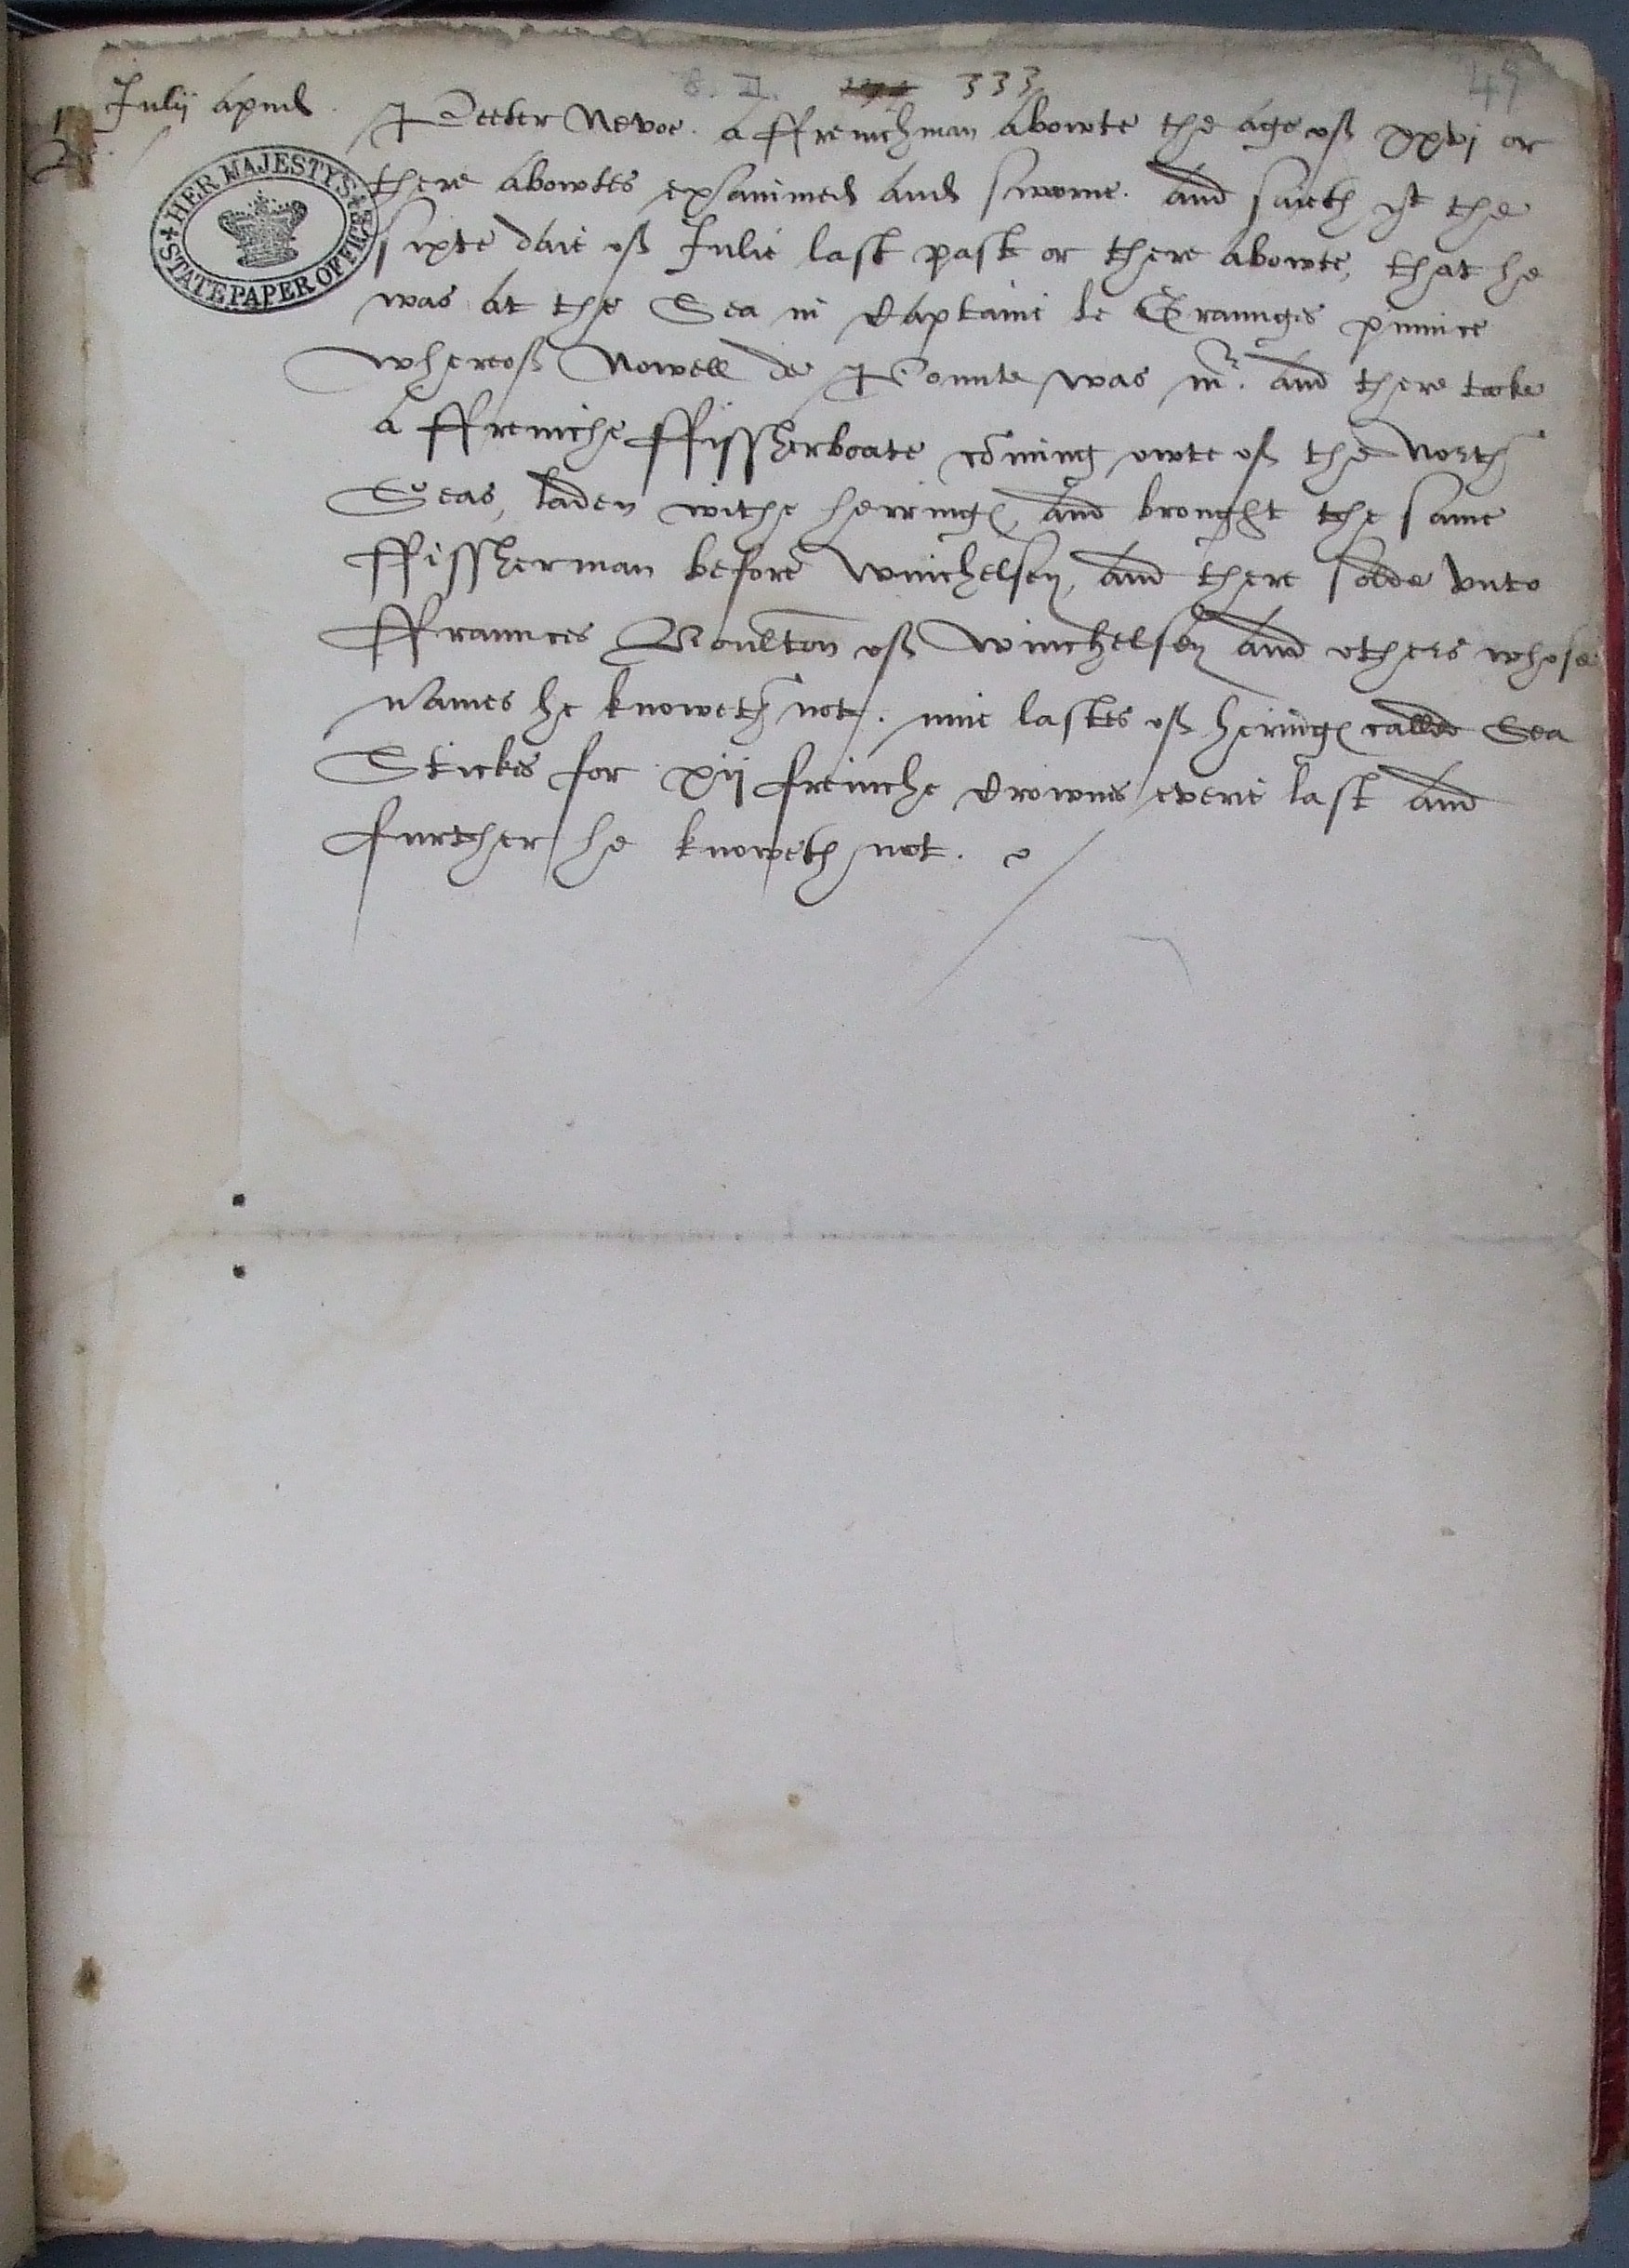 333 49
Julij apud
Peeter Nevoe. a ffrenchman abowte the age off xxvj or
there abowtes exsamined and sworne. And saieth yt the
sixte daie off Julie last past or there abowte, that he
was at the Sea in Captaine le Graunges pinnice
whereoff Nowell de Pounte was mr. and there toke
a ffrenche ffissherboate cōming owte off the North
Seas, laden withe herringes, And brought the same
ffissherman before winchelsey, And there solde vnto
ffraunces Boulton off winchelsey And others whose
names he knoweth not. nine lastes off heringes called Sea
Stickes for xij frenche Crownes everie last And
further he knoweth not.
HER MAJESTY'S
STATE PAPER OFFICE